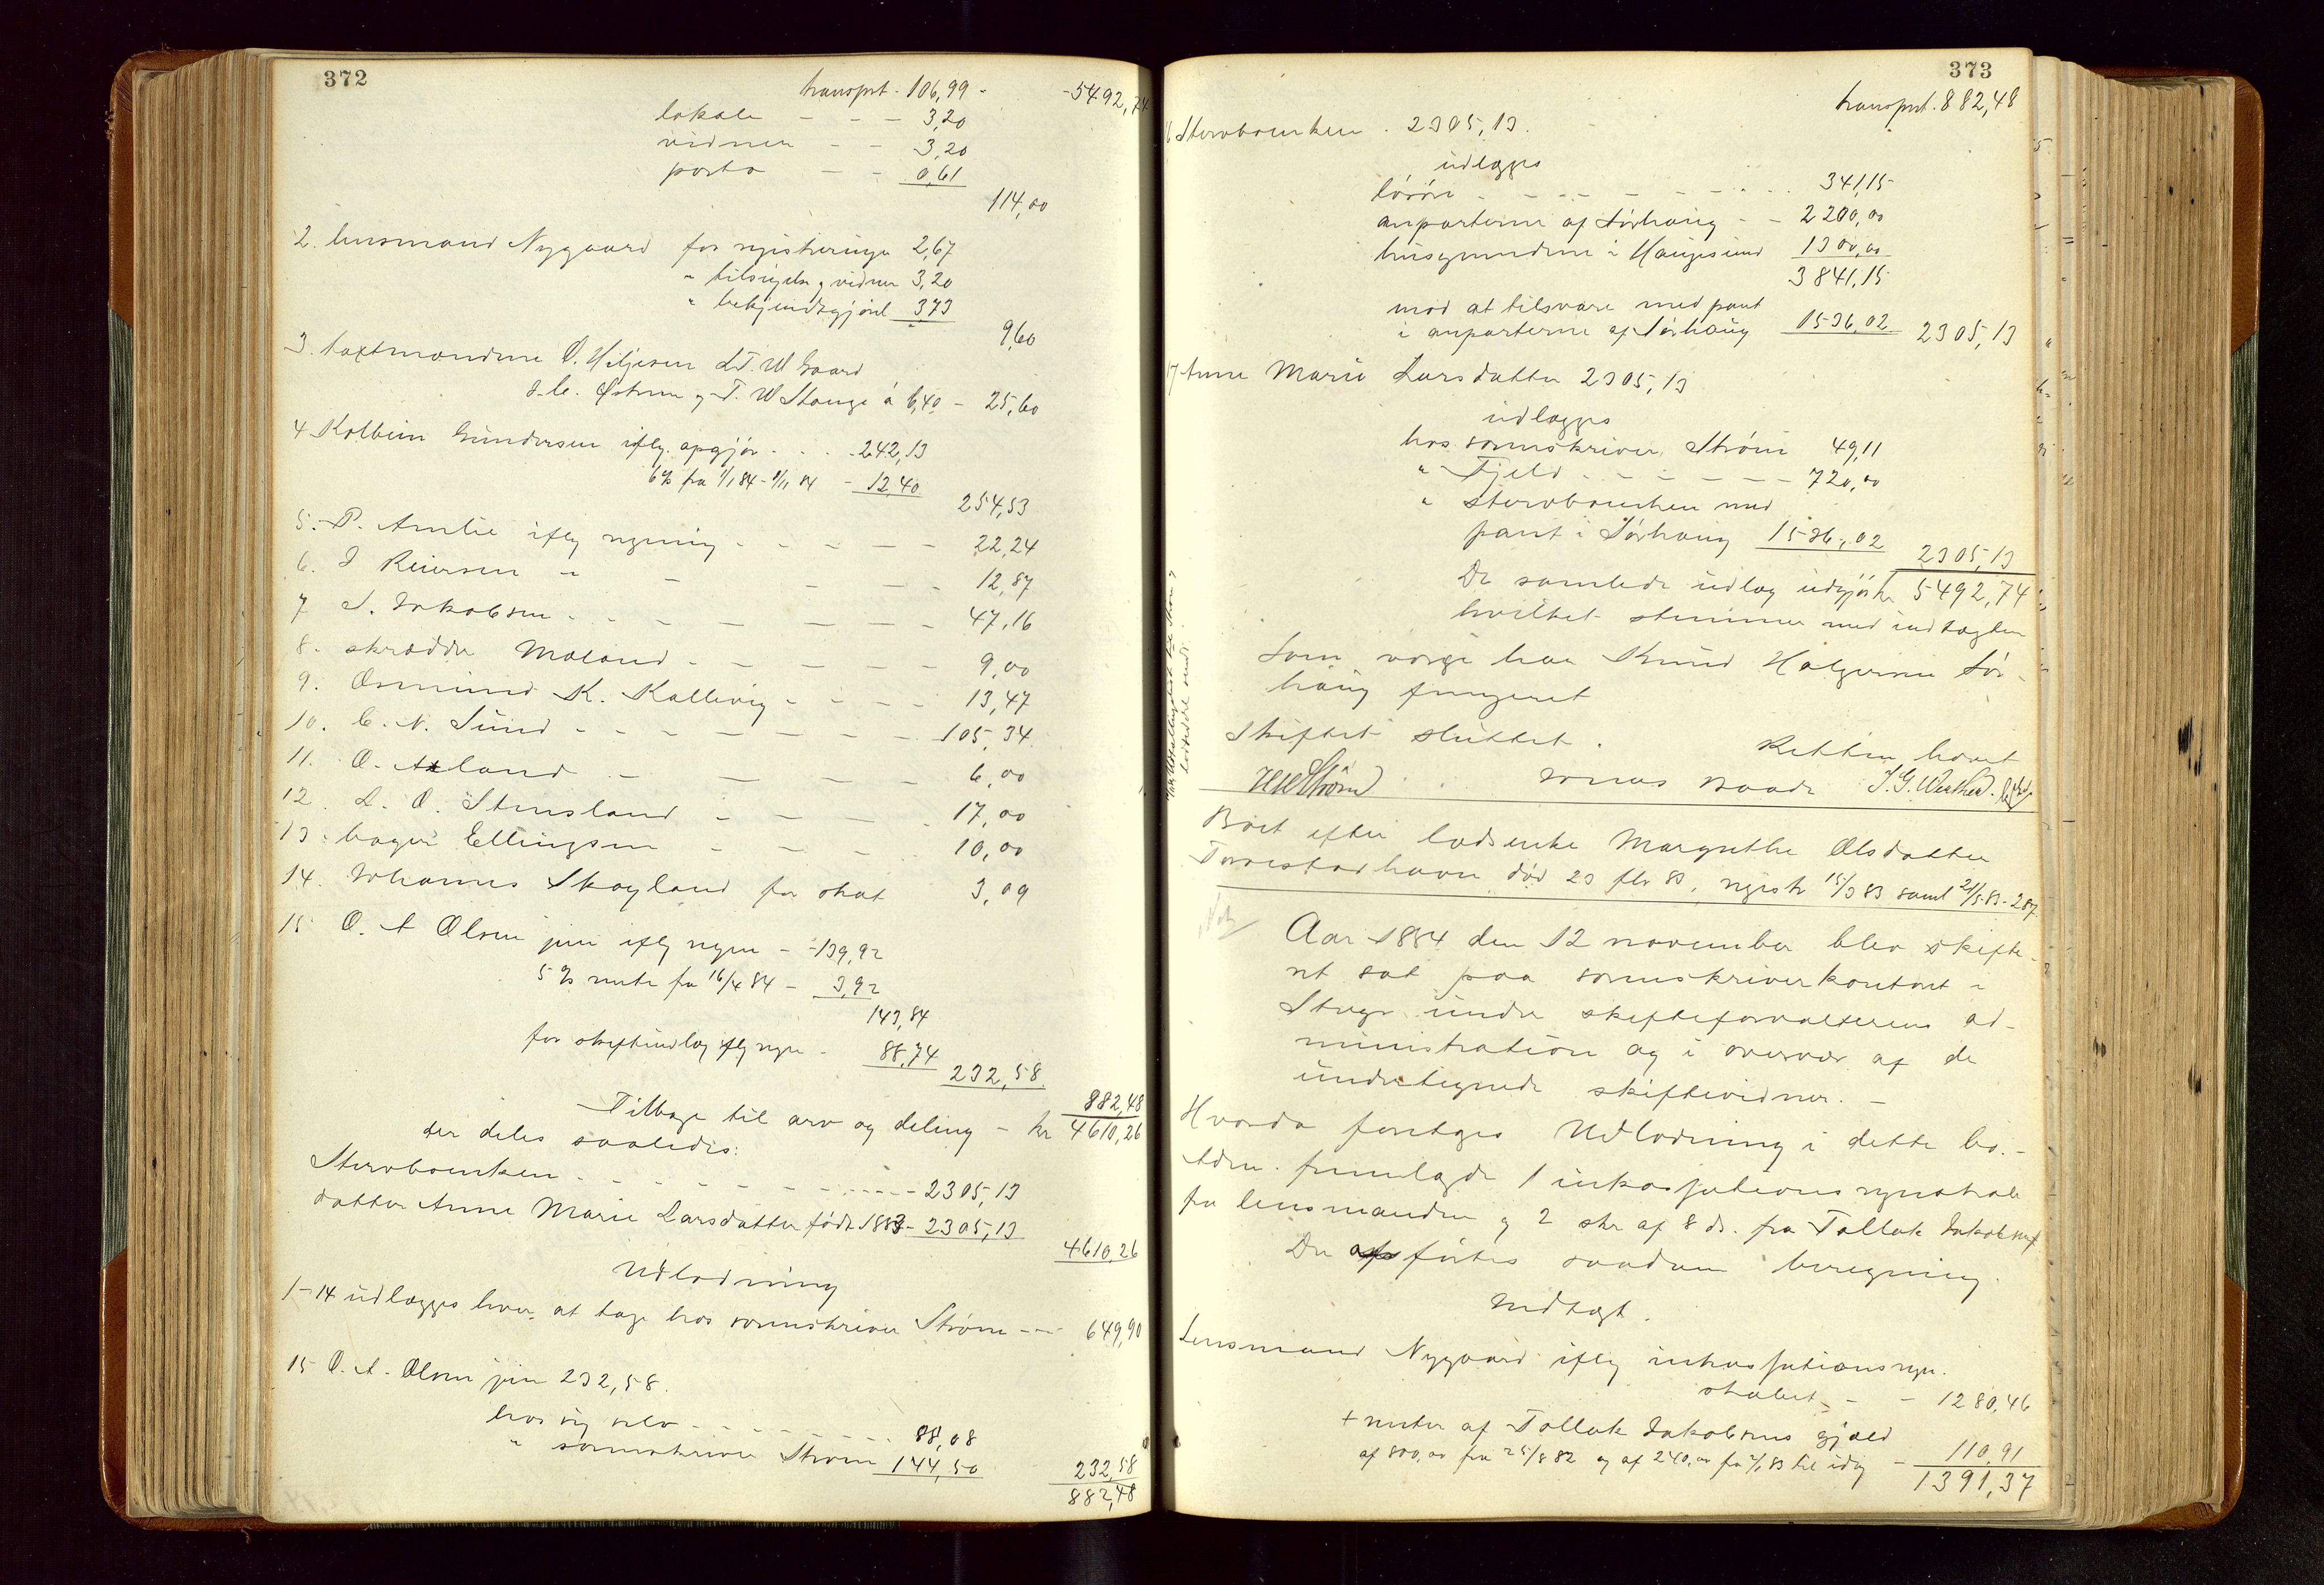 372
transprt. 106,99 - - 5492,74
lokale - - - 3,20
vidner - - 3,20
porto - - 0,61
114,00
2. lensmand Nygaard for registreringen 2,67
" tilsigelse og vidner 3,20
" bekjendtgjörel 3,73
9,60
3. taxtmændene O. Hiljesen L. T. W Gaard
J. C. Østreim og T. W Stange á 6,40 - 25,60
4 Kolbein Gundersen iflg. opgjör - . . - 242,13
6% fra 1/1 84 - 1/11 84 - 12,40
254,53
5. P. Amlie iflg regning - - - - - 22,24
6. J Reiersen - " - - - - 12,87
7 S. Jakobsen - . - - - - - 47,16
8. skrædder Mæland - - - - - 9,00
9. Osmund K. Kallevig - - - - 13,47
10. C. N. Sund - - - - - - - - 105,34
11. O. Aaland - - - - - 6,00
12. L. O. Stensland - - - - 17,00
13. bager Ellingsen - - - - 10,00
14. Johannes Skogland for skat 3,09
15 O. A Olsen jun iflg regn - - 139,92
5% rente fra 16/4 84 - 3,92
143,84
for skifteudlæg iflg regn - 88,74
232,58
882,48
Tilbage til arv og deling - kr 4610,26
der deles saaledes:
Stervboenken - - - - - - - - - - 2305,13
datter Anne Marie Larsdatter födt 1883 - 2305,13
4610,26
Udlodning
1-14 udlægges hver at tage hos sorenskriver Ström - - 649,90
15 O. A. Olsen jun 232,58.
hos sig selv - - - - - - - 88,08
" sorenskriver Ström 144,50
232,58
882,48
373
transprt. 882,48
16 Stervboenken . 2305,13.
udlægges
lösöre - - - - - - - - . . 341,15
anparterne af Sörhaug - - 2200,00
husgrunden i Haugesund 1300,00
3841,15
mod at tilsvare med pant
i anparterne af Sörhaug 1536,02 2305,13
17 Anne Marie Larsdatter 2305,13
udlægges
hos sorenskriver Ström 49,11
" Fjeld - - - - - - 720,00
" stervboenken med
pant i Sörhaug 1536,02 2305,13
De samlede udlæg udgjör kr 5492,74
hvilket stemmer med indtægten
Som værge har Knud Helgesen Sör-
haug fungeret
Skiftet sluttet. Retten hævet
Ström Jonas
Boet efter lodsenke Margrethe Olsdatter
Torvestadhavn död 23 febr 83, registr 15/3 83 samt 21/5 83 - 287
Aar 1884 den 12 november blev skifte-
ret sat paa sorenskriverkontoret i
Stage under skifteforvalterens ad-
ministration og i overvær af de
undertegnede skiftevidner. -
Hvorda foretoges Udlodning i dette bo. -
Adm. fremlagde 1 inkassationsregnskab
fra lensmanden og 2 skr af 8 ds. fra Tollak Jakobsen
Der förtes saadan beregning.
Indtægt.
Lensmand Nygaard iflg inkassationsregn.
skabet - - 1280,46
+ renter af Tollak Jakobsens gjæld
af 800,00 fra 25/8 82 og af 240,00 fra 2/1 83 til idag - 110,91
1391,37